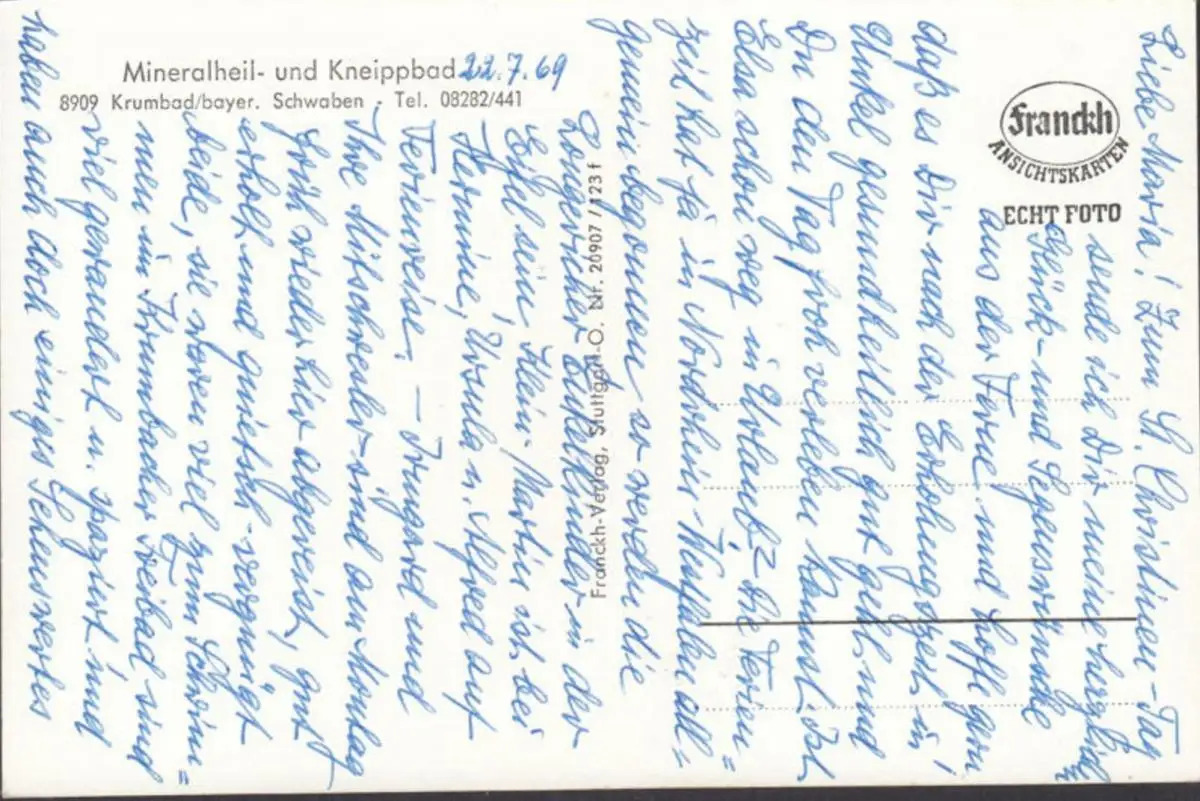 Mineralheil- und Kneippbad 22.7.69
8909 Krumbad/bayer. Schwaben · Tel. 08282/441
Franckh
ANSICHTSKARTEN
ECHT FOTO
Franckh-Verlag, Stuttgart-O. Nr. 20907/123 f
Liebe Maria! Zum St. Christinen-Tag
sende ich Dir meine herzlich=
Glück- und Segenswünsche
aus der Ferne und hoffe gern
daß es Dir nach der Erholungszeit in
gesundheitlich gut geht und
Du den Tag froh verleben kannst. Ist
Elsa schon weg in Urlaub? Die Ferien=
zeit hat ja in Nordrhein-Westfalen all=
gemein begonnen, so werden die
Longericher Enkelkinder in der
Eifel sein, Klein-Martin ist bei
Hermine, Ursula u. Alfred auf
Ferienreise. – Irmgard und
Ihre Mitschwester sind am Montag
früh wieder hier abgereist, gut
erholt und quietsch-vergnügt
beide, sie waren viel zum Schwim=
men im Krumbacher Freibad sind
viel gewandert u. spaziert und
haben auch doch einiges Sehenswertes